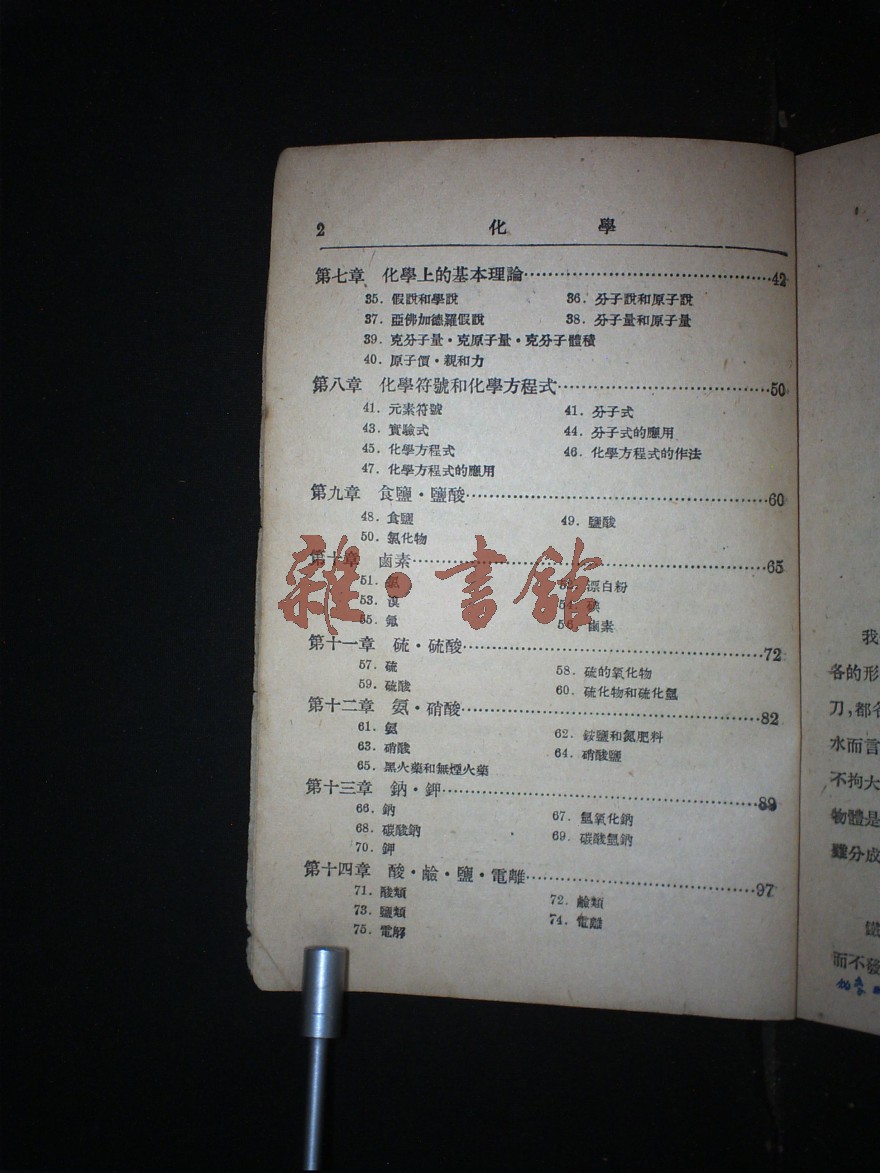 2 化 學
第七章 化學上的基本理論……42
35. 假說和學說 36. 分子說和原子說
37. 亞佛加德羅假說 38. 分子量和原子量
39. 克分子量・克原子量・克分子體積
40. 原子價・親和力
第八章 化學符號和化學方程式……50
41. 元素符號 41. 分子式
43. 實驗式 44. 分子式的應用
45. 化學方程式 46. 化學方程式的作法
47. 化學方程式的應用
第九章 食鹽・鹽酸……60
48. 食鹽 49. 鹽酸
50. 氯化物
第十章 鹵素……65
51. 52. 漂白粉
53. 溴 54. 碘
55. 氟 56. 鹵素
第十一章 硫・硫酸……72
57. 硫 58. 硫的氧化物
59. 硫酸 60. 硫化物和硫化氫
第十二章 氨・硝酸……82
61. 氨 62. 銨鹽和氮肥料
63. 硝酸 64. 硝酸鹽
65. 黑火藥和無煙火藥
第十三章 鈉・鉀……89
66. 鈉 67. 氫氧化鈉
68. 碳酸鈉 69. 碳酸氫鈉
70. 鉀
第十四章 酸・鹼・鹽・電離……97
71. 酸類 72. 鹼類
73. 鹽類 74. 電離
75. 電解
雜・書館
我
各的形
刀,都各
水而言
不拘大
物體是
難分成
鐵
而不發